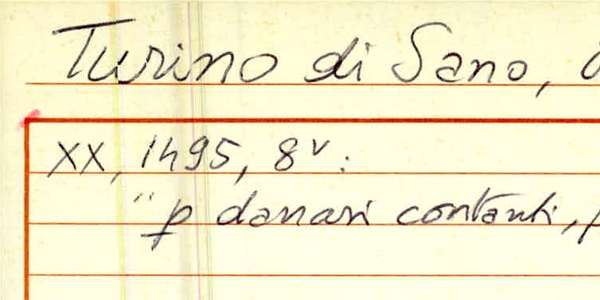 Turino di Sano,
XX, 1495, 8v:
"p danari contanti,